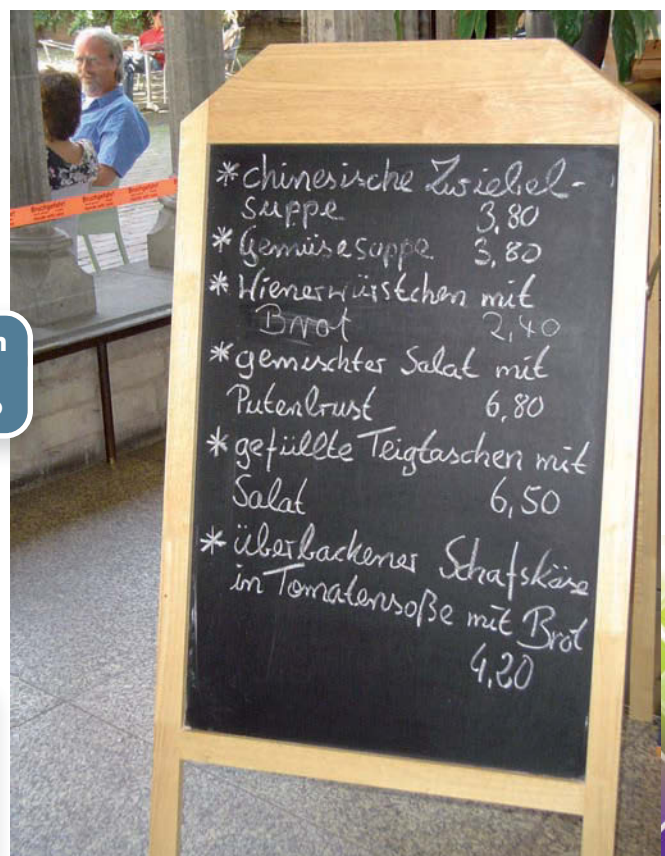 * chinesische Zwiebel-
suppe 3,80
* Gemüsesuppe 3,80
* Wienerwürstchen mit
Brot 2,40
* gemischter Salat mit
Putenbrust 6,80
* gefüllte Teigtaschen mit
Salat 6,50
* überbackener Schafskäse
in Tomatensoße mit Brot
4,20